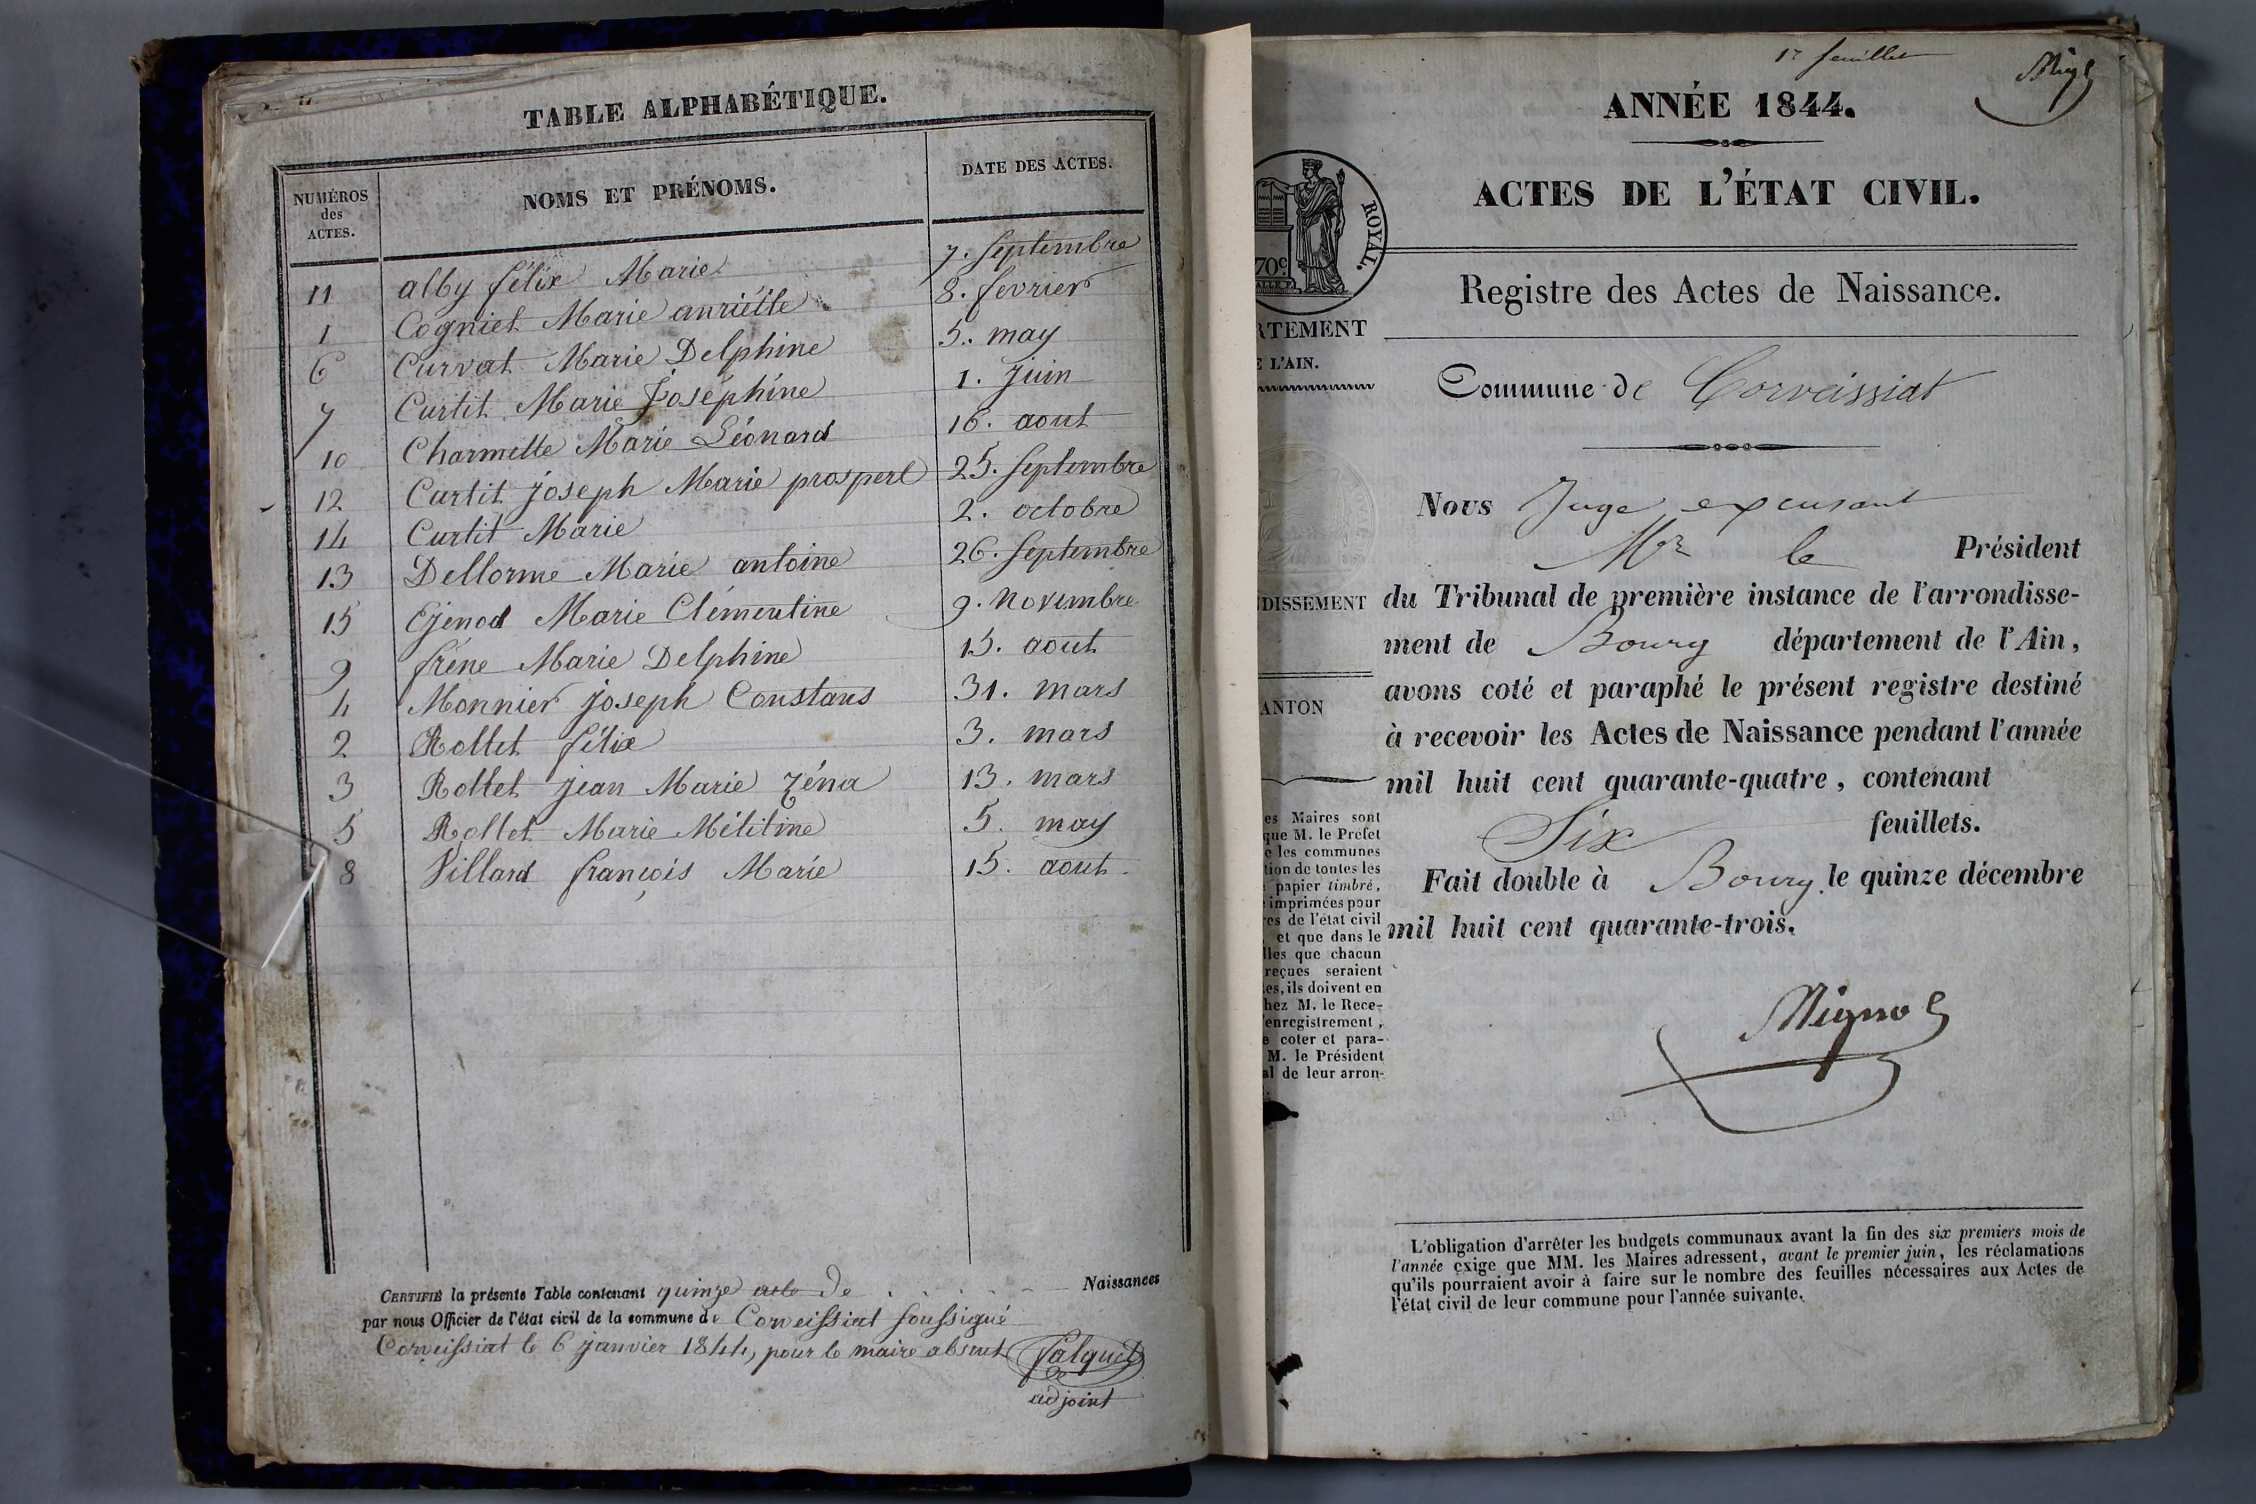 TABLE ALPHABÉTIQUE.
NUMÉROS des ACTES. NOMS ET PRÉNOMS. DATE DES ACTES.
11 alby félix Marie 7. Septembre
1 Cogniet Marie anriétte 8. fevrier
6 Curvat Marie Delphine 5. may
7 Curtit Marie Joséphine 1. Juin
10 Charmette Marie Léonard 16. aout
12 Curtit joseph Marie prosperl 25. Septembre
14 Curtit Marie 2. octobre
13 Dellorme Marie antoine 26. Septembre
15 Ejenod Marie Clémentine 9. Novembre
9 frène Marie Delphine 15. aout
4 Monnier joseph Constans 31. mars
2 Rollet félix 3. mars
3 Rollet jean Marie zéna 13. mars
5 Rollet Marie Mélitine 5. may
8 Villard françois Marie 15. aout
CERTIFIÉ la présente Table contenant quinze acte de Naissances
par nous Officier de l'état civil de la commune de Corveissiat soussigné
Corveissiat le 6 janvier 1844, pour le maire absent falquet
adjoint
1er feuillet
ANNÉE 1844.
ACTES DE L'ÉTAT CIVIL.
ROYAL.
70c.
Registre des Actes de Naissance.
RTEMENT
E L'AIN.
Commune de Corveissiat
Nous Juge excusant
Mr le Président
DISSEMENT
du Tribunal de première instance de l'arrondisse-
ment de Bourg département de l'Ain,
avons coté et paraphé le présent registre destiné
ANTON
à recevoir les Actes de Naissance pendant l'année
mil huit cent quarante-quatre, contenant
Six feuillets.
Fait double à Bourg, le quinze décembre
mil huit cent quarante-trois.
es Maires sont
que M. le Préfet
e les communes
tion de toutes les
papier timbré,
imprimées pour
res de l'état civil
et que dans le
lles que chacun
reçues seraient
es, ils doivent en
hez M. le Rece-
enregistrement,
e coter et para-
M. le Président
al de leur arron-
Mignot
L'obligation d'arrêter les budgets communaux avant la fin des six premiers mois de
l'année exige que MM. les Maires adressent, avant le premier juin, les réclamations
qu'ils pourraient avoir à faire sur le nombre des feuilles nécessaires aux Actes de
l'état civil de leur commune pour l'année suivante.